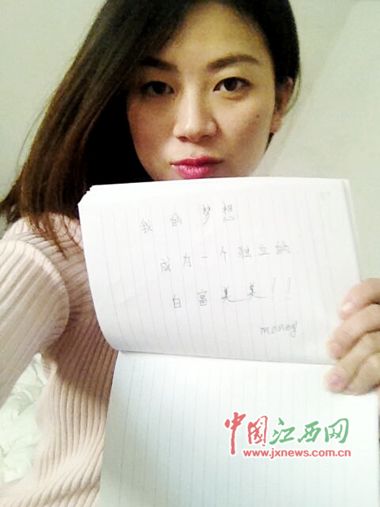 我的梦想
成为一个独立的
白富美美!!
manog
中国江西网
www.jxnews.com.cn